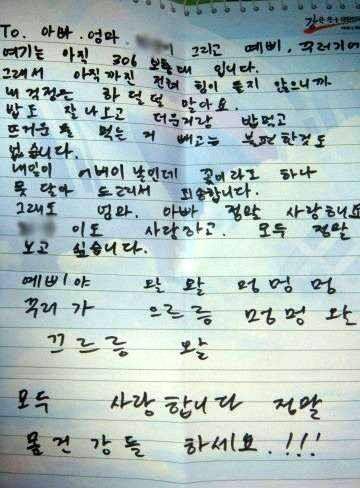 To. 아빠. 엄마. 이 그리고 예삐, 꾸러기에
여기는 아직 306 보충대 입니다.
그래서 아직까진 전혀 힘이 들지 않으니까
내 걱정은 하덜덜 말아요.
밥도 잘 나오고 더운거랑 밥먹고
뜨거운 물 먹는 거 빼고는 불편한것도
없습니다.
내일이 어버이날인데 꽃이라도 하나
못 달아 드려서 죄송합니다.
그래도 엄마. 아빠 정말 사랑해요
이도 사랑하고. 모두 정말
보고 싶습니다.
예삐야 왈 왈 멍멍멍
꾸러가 으르릉 멍멍 왈
끄르릉 왈
모두 사랑합니다 정말
몸건강들 하세요.!!!